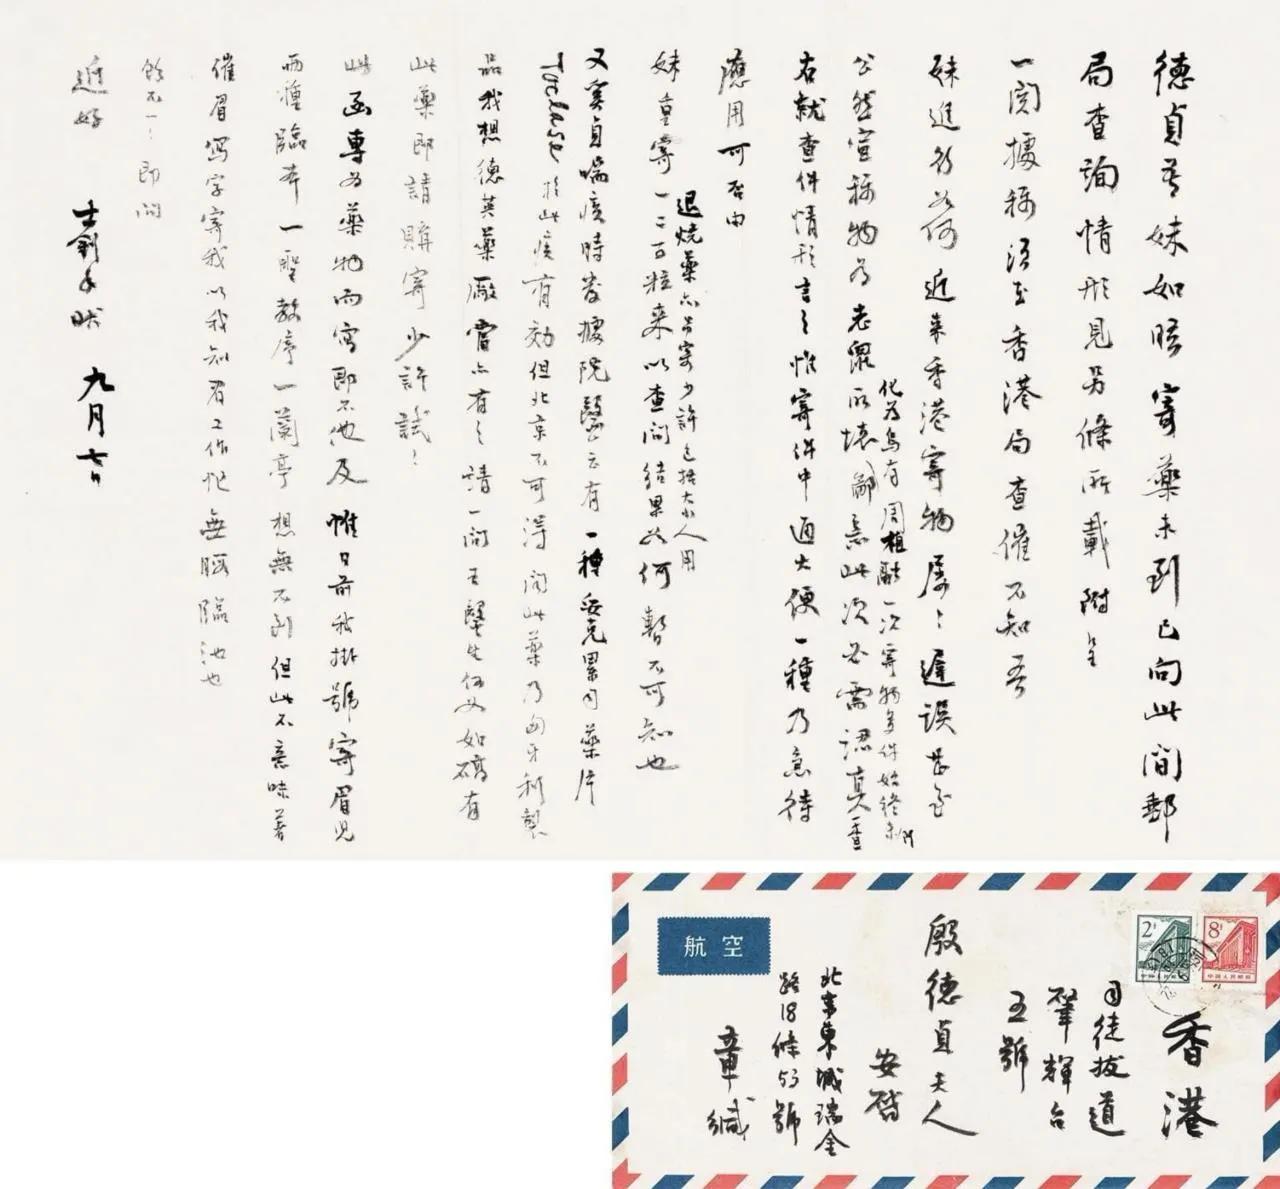 德貞吾妹如晤寄藥未到已向此間郵
局查詢情形見另條所載附呈
一閱據稱須至香港局查催不知吾
妹進行如何近來香港寄物屢〻遲誤甚至
公然宣稱物為老鼠所壞鄙意此次必需認真查
化為烏有周植融一次寄物多件始終未
右就查件情形言之惟寄件中通大便一種乃急待
應用可否由
妹重寄一二百粒來以查問結果如何暫不可知也
退燒藥亦另寄少許包括大小人用
又奚貞喘疾時發據院醫云有一種妥克累司藥片
於此疾有効但北京不可得聞此藥乃匈牙利製
品我想德英藥廠當亦有之請一問王醫生伍又如碻有
此藥即請購寄少許試〻
此函專為藥物而寫即不他及惟日前我掛號寄眉兒
兩種臨本一聖教序一蘭亭想無不到但此不意味著
催眉寫字寄我以我知君工作忙無暇臨池也
餘不一〻即問
近好
士釗手狀九月七日
航空
2
8
中國人民郵政
中國人民郵政
香港
司徒拔道
肇輝台
五號
殷德貞夫人
安啓
北京東城瑞金
路18條53號
章緘